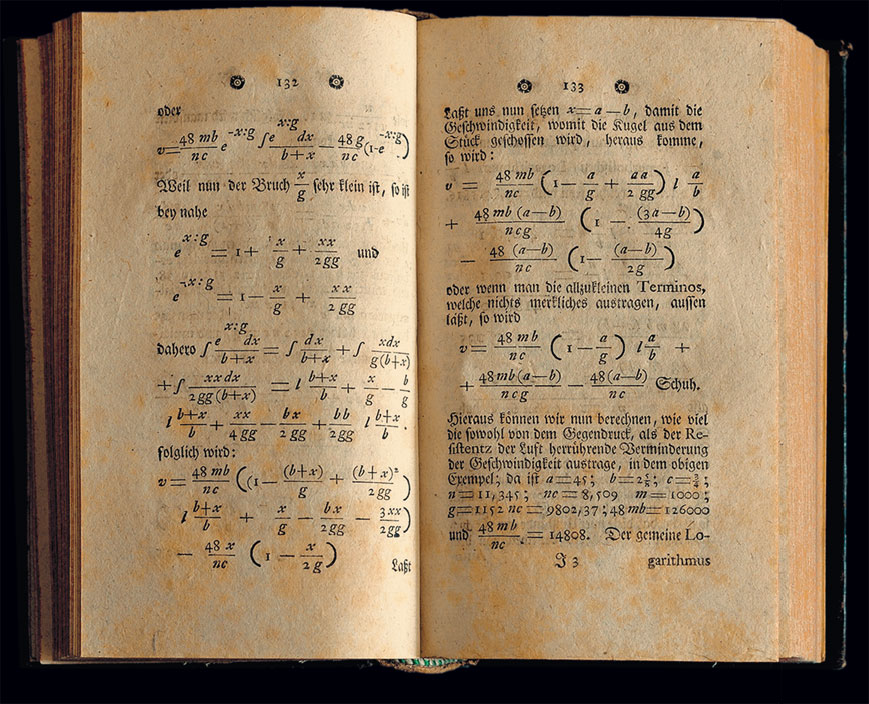 132
oder
v=\frac{48 mb}{nc} e^{-x:g} ∫\frac{e^{x:g} dx}{b+x} — \frac{48 g}{nc} (1-e^{-x:g})
Weil nun der Bruch \frac{x}{g} sehr klein ist, so ist
bey nahe
e^{x:g} = 1 + \frac{x}{g} + \frac{xx}{2gg} und
e^{-x:g} = 1 — \frac{x}{g} + \frac{xx}{2gg}
dahero ∫\frac{e^{x:g} dx}{b+x} = ∫\frac{dx}{b+x} + ∫\frac{xdx}{g(b+x)}
+ ∫\frac{xxdx}{2gg(b+x)} = l \frac{b+x}{b} + \frac{x}{g} — \frac{b}{g}
l \frac{b+x}{b} + \frac{xx}{4gg} — \frac{bx}{2gg} + \frac{bb}{2gg} l \frac{b+x}{b}.
folglich wird:
v = \frac{48 mb}{nc} ((1 — \frac{(b+x)}{g} + \frac{(b+x)²}{2gg})
l \frac{b+x}{b} + \frac{x}{g} — \frac{bx}{2gg} — \frac{3xx}{2gg})
— \frac{48 x}{nc} (1 — \frac{x}{2g})
Laßt
133
Laßt uns nun setzen x=a—b, damit die
Geschwindigkeit, womit die Kugel aus dem
Stück geschossen wird, heraus komme,
so wird:
v = \frac{48 mb}{nc} (1 — \frac{a}{g} + \frac{aa}{2gg}) l \frac{a}{b}
+ \frac{48 mb (a—b)}{ncg} (1 — \frac{(3a—b)}{4g})
— \frac{48 (a—b)}{nc} (1 — \frac{(a—b)}{2g})
oder wenn man die allzukleinen Terminos,
welche nichts merkliches austragen, aussen
läßt, so wird
v = \frac{48 mb}{nc} (1 — \frac{a}{g}) l \frac{a}{b} +
+ \frac{48mb(a—b)}{ncg} — \frac{48(a—b)}{nc} Schuh.
Hieraus können wir nun berechnen, wie viel
die sowohl von dem Gegendruck, als der Re-
sistentz der Luft herrührende Verminderung
der Geschwindigkeit austrage, in dem obigen
Exempel; da ist a=45; b=2⅝; c=¾;
n=11,345; nc=8,509 m=1000;
g=1152 nc=9802,37; 48 mb=126000
und \frac{48 mb}{nc} = 14808. Der gemeine Lo-
J 3 garithmus